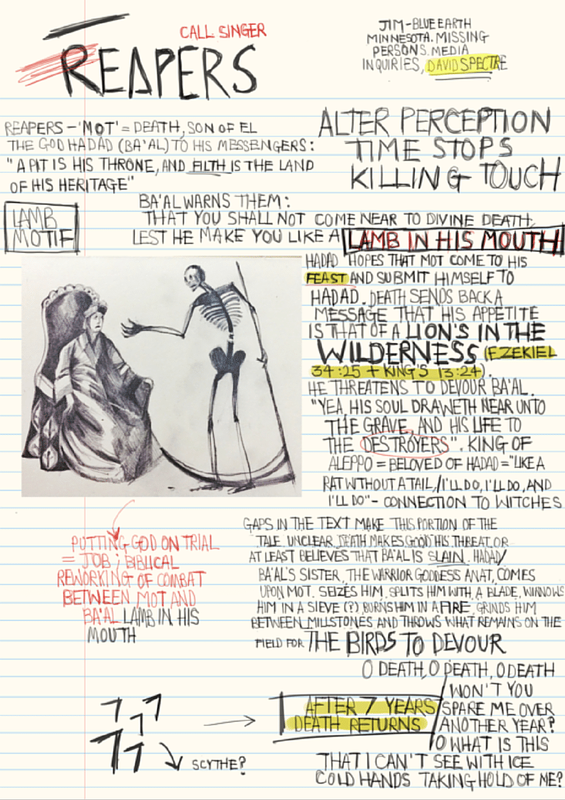 CALL SINGER
REAPERS
JIM-BLUE EARTH
MINNESOTA. MISSING
PERSONS. MEDIA
INQUIRIES, DAVID SPECTRE
REAPERS - 'MOT' = DEATH, SON OF EL
THE GOD HADAD (BA'AL) TO HIS MESSENGERS:
"A PIT IS HIS THRONE, AND FILTH IS THE LAND
OF HIS HERITAGE"
ALTER PERCEPTION
TIME STOPS
KILLING TOUCH
LAMB
MOTIF
BA'AL WARNS THEM:
THAT YOU SHALL NOT COME NEAR TO DIVINE DEATH,
LEST HE MAKE YOU LIKE A LAMB IN HIS MOUTH
HADAD HOPES THAT MOT COME TO HIS
FEAST AND SUBMIT HIMSELF TO
HADAD. DEATH SENDS BACK A
MESSAGE THAT HIS APPETITE
IS THAT OF A LION'S IN THE
WILDERNESS (EZEKIEL
34:25 + KING'S 13:24).
HE THREATENS TO DEVOUR BA'AL.
"YEA, HIS SOUL DRAWETH NEAR UNTO
THE GRAVE, AND HIS LIFE TO
THE DESTROYERS". KING OF
ALEPPO = BELOVED OF HADAD = "LIKE A
RAT WITHOUT A TAIL,/I'LL DO, I'LL DO, AND
I'LL DO" - CONNECTION TO WITCHES
PUTTING GOD ON TRIAL
= JOB; BIBLICAL
REWORKING OF COMBAT
BETWEEN MOT AND
BA'AL LAMB IN HIS
MOUTH
GAPS IN THE TEXT MAKE THIS PORTION OF THE
TALE UNCLEAR. DEATH MAKES GOOD HIS THREAT OR
AT LEAST BELIEVES THAT BA'AL IS SLAIN. HADAD/
BA'AL'S SISTER, THE WARRIOR GODDESS ANAT, COMES
UPON MOT, SEIZES HIM, SPLITS HIM WITH A BLADE, WINNOWS
HIM IN A SIEVE (?) BURNS HIM IN A FIRE, GRINDS HIM
BETWEEN MILLSTONES AND THROWS WHAT REMAINS ON THE
FIELD FOR THE BIRDS TO DEVOUR
O DEATH, O DEATH, O DEATH
WON'T YOU
SPARE ME OVER
ANOTHER YEAR?
O WHAT IS THIS
THAT I CAN'T SEE WITH ICE
COLD HANDS TAKING HOLD OF ME?
AFTER 7 YEARS
DEATH RETURNS
7 7
7
7 7
SCYTHE?